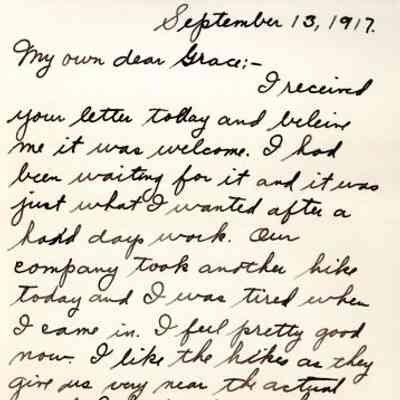 September 13, 1917.
My own dear Grace:-
I received
your letter today and beleive
me it was welcome. I had
been waiting for it and it was
just what I wanted after a
hard days work. Our
company took another hike
today and I was tired when
I came in. I feel pretty good
now. I like the hikes as they
give us very near the actual